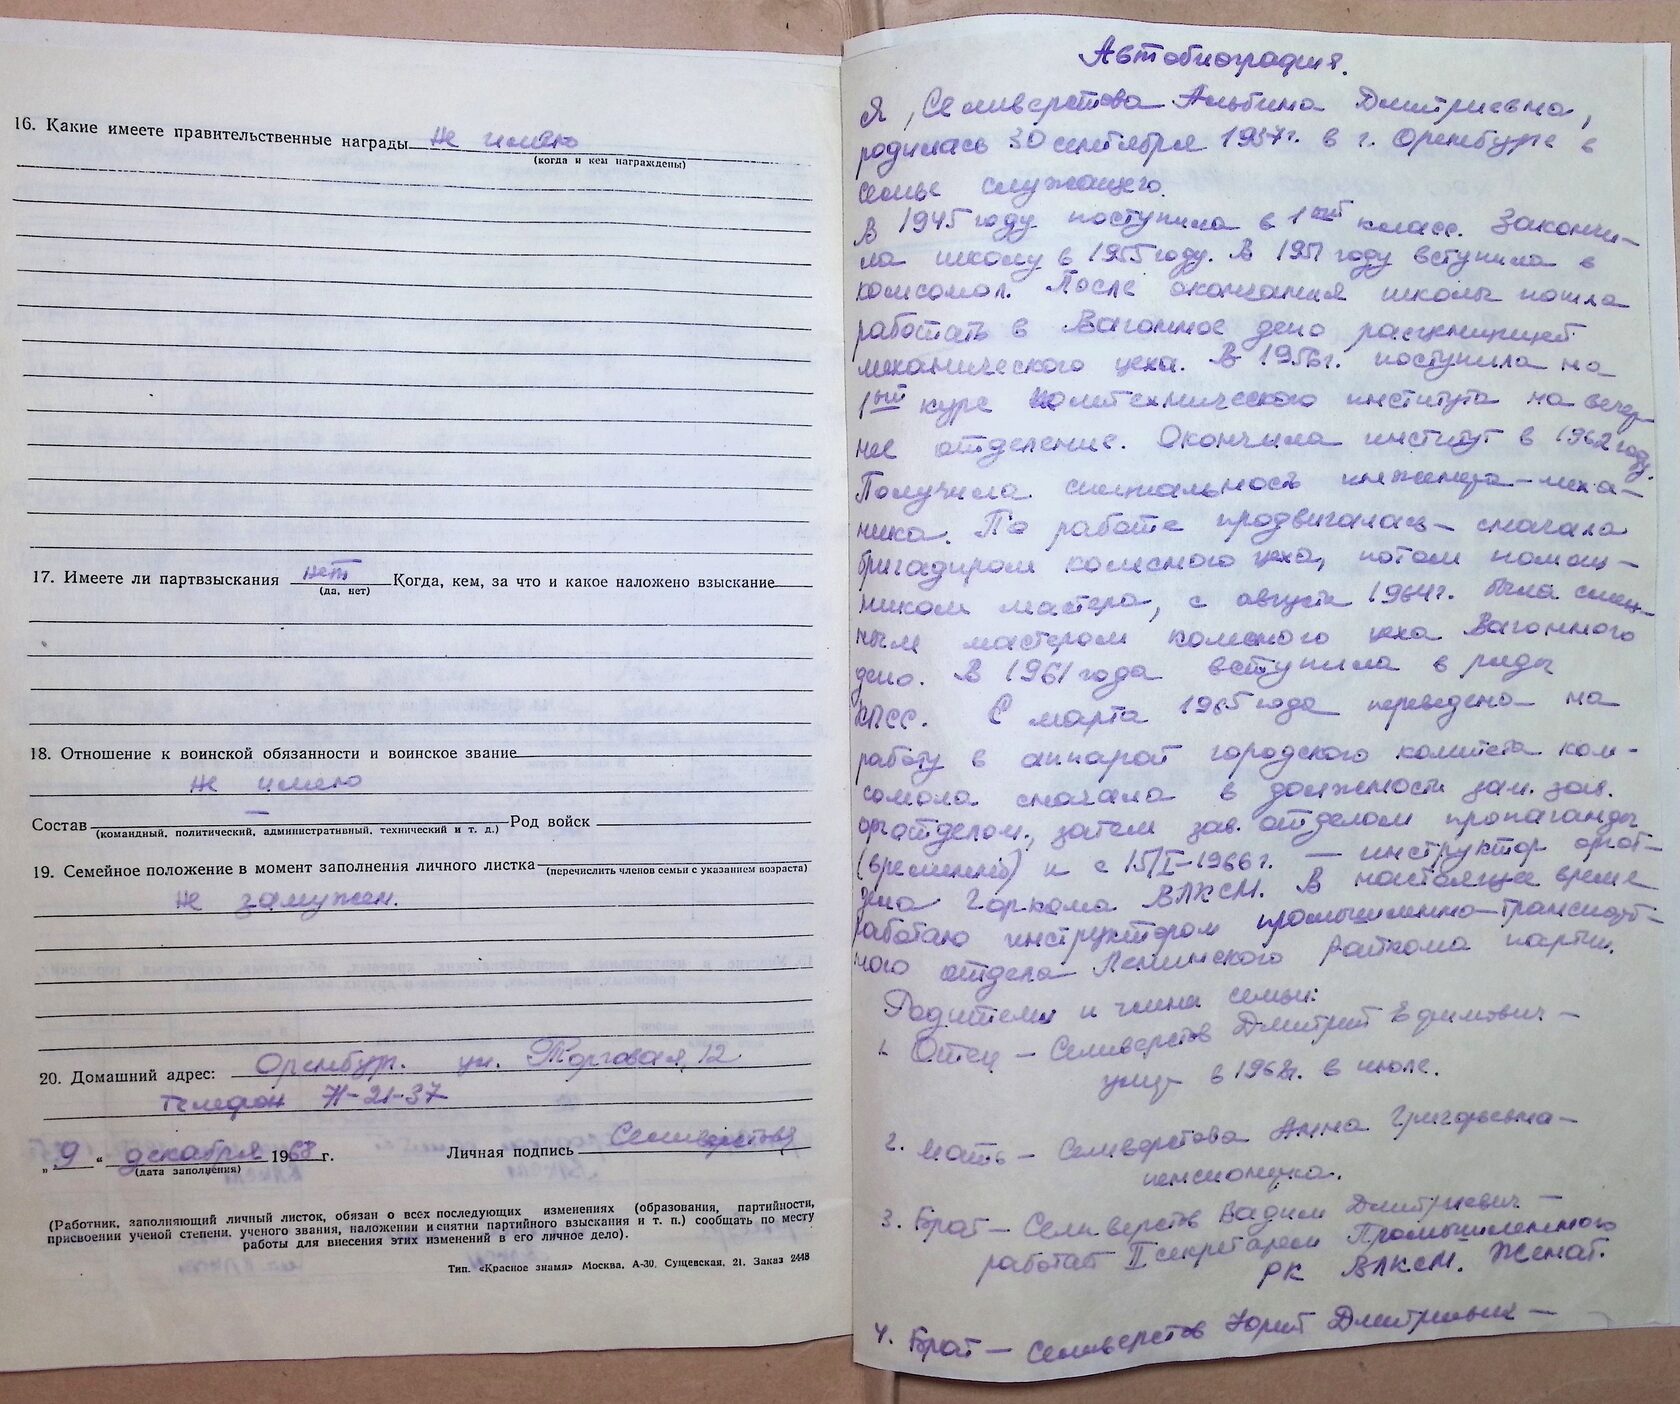 16. Какие имеете правительственные награды Не имею
(когда и кем награждены)
17. Имеете ли партвзыскания нет Когда, кем, за что и какое наложено взыскание
(да, нет)
18. Отношение к воинской обязанности и воинское звание
Не имею
Состав — Род войск
(командный, политический, административный, технический и т. д.)
19. Семейное положение в момент заполнения личного листка
(перечислить членов семьи с указанием возраста)
Не замужем.
20. Домашний адрес: Оренбург. ул. Торговая, 12
телефон 71-21-37
„ 9 “ декабря 1968 г.
(дата заполнения)
Личная подпись Селиверстова
(Работник, заполняющий личный листок, обязан о всех последующих изменениях (образования, партийности,
присвоении ученой степени, ученого звания, наложении и снятии партийного взыскания и т. п.) сообщать по месту
работы для внесения этих изменений в его личное дело).
Тип. «Красное знамя» Москва, А-30, Сущевская, 21. Заказ 2448
Автобиография.
Я, Селиверстова Альбина Дмитриевна,
родилась 30 сентября 1937г. в г. Оренбурге в
семье служащего.
В 1945 году поступила в 1ый класс. Закончи-
ла школу в 1955 году. В 1951 году вступила в
комсомол. После окончания школы пошла
работать в Вагонное депо расценщицей
механического цеха. В 1956г. поступила на
1ый курс Политехнического института на вечер
нее отделение. Окончила институт в 1962 году.
Получила специальность инженера-меха-
ника. По работе продвигалась – сначала
бригадиром колесного цеха, потом помощ-
ником мастера, с августа 1964г. была смен-
ным мастером колесного цеха Вагонного
депо. В 1961 года вступила в ряды
КПСС. С марта 1965 года переведена на
работу в аппарат городского комитета ком-
сомола сначала в должности зам. зав.
орготделом, затем зав. отделом пропаганды
(временной) и с 15/I-1966г. — инструктор орг от-
дела Горкома ВЛКСМ. В настоящее время
работаю инструктором промышленно-транспорт-
ного отдела Ленинского Райкома партии.
Родители и члены семьи:
1. Отец – Селиверстов Дмитрий Ефимович –
умер в 1962г. в июле.
2. Мать – Селиверстова Анна Григорьевна –
пенсионерка.
3. Брат – Селиверстов Вадим Дмитриевич –
работает II секретарем Промышленного
РК ВЛКСМ. Женат.
4. Брат – Селиверстов Юрий Дмитриевич –